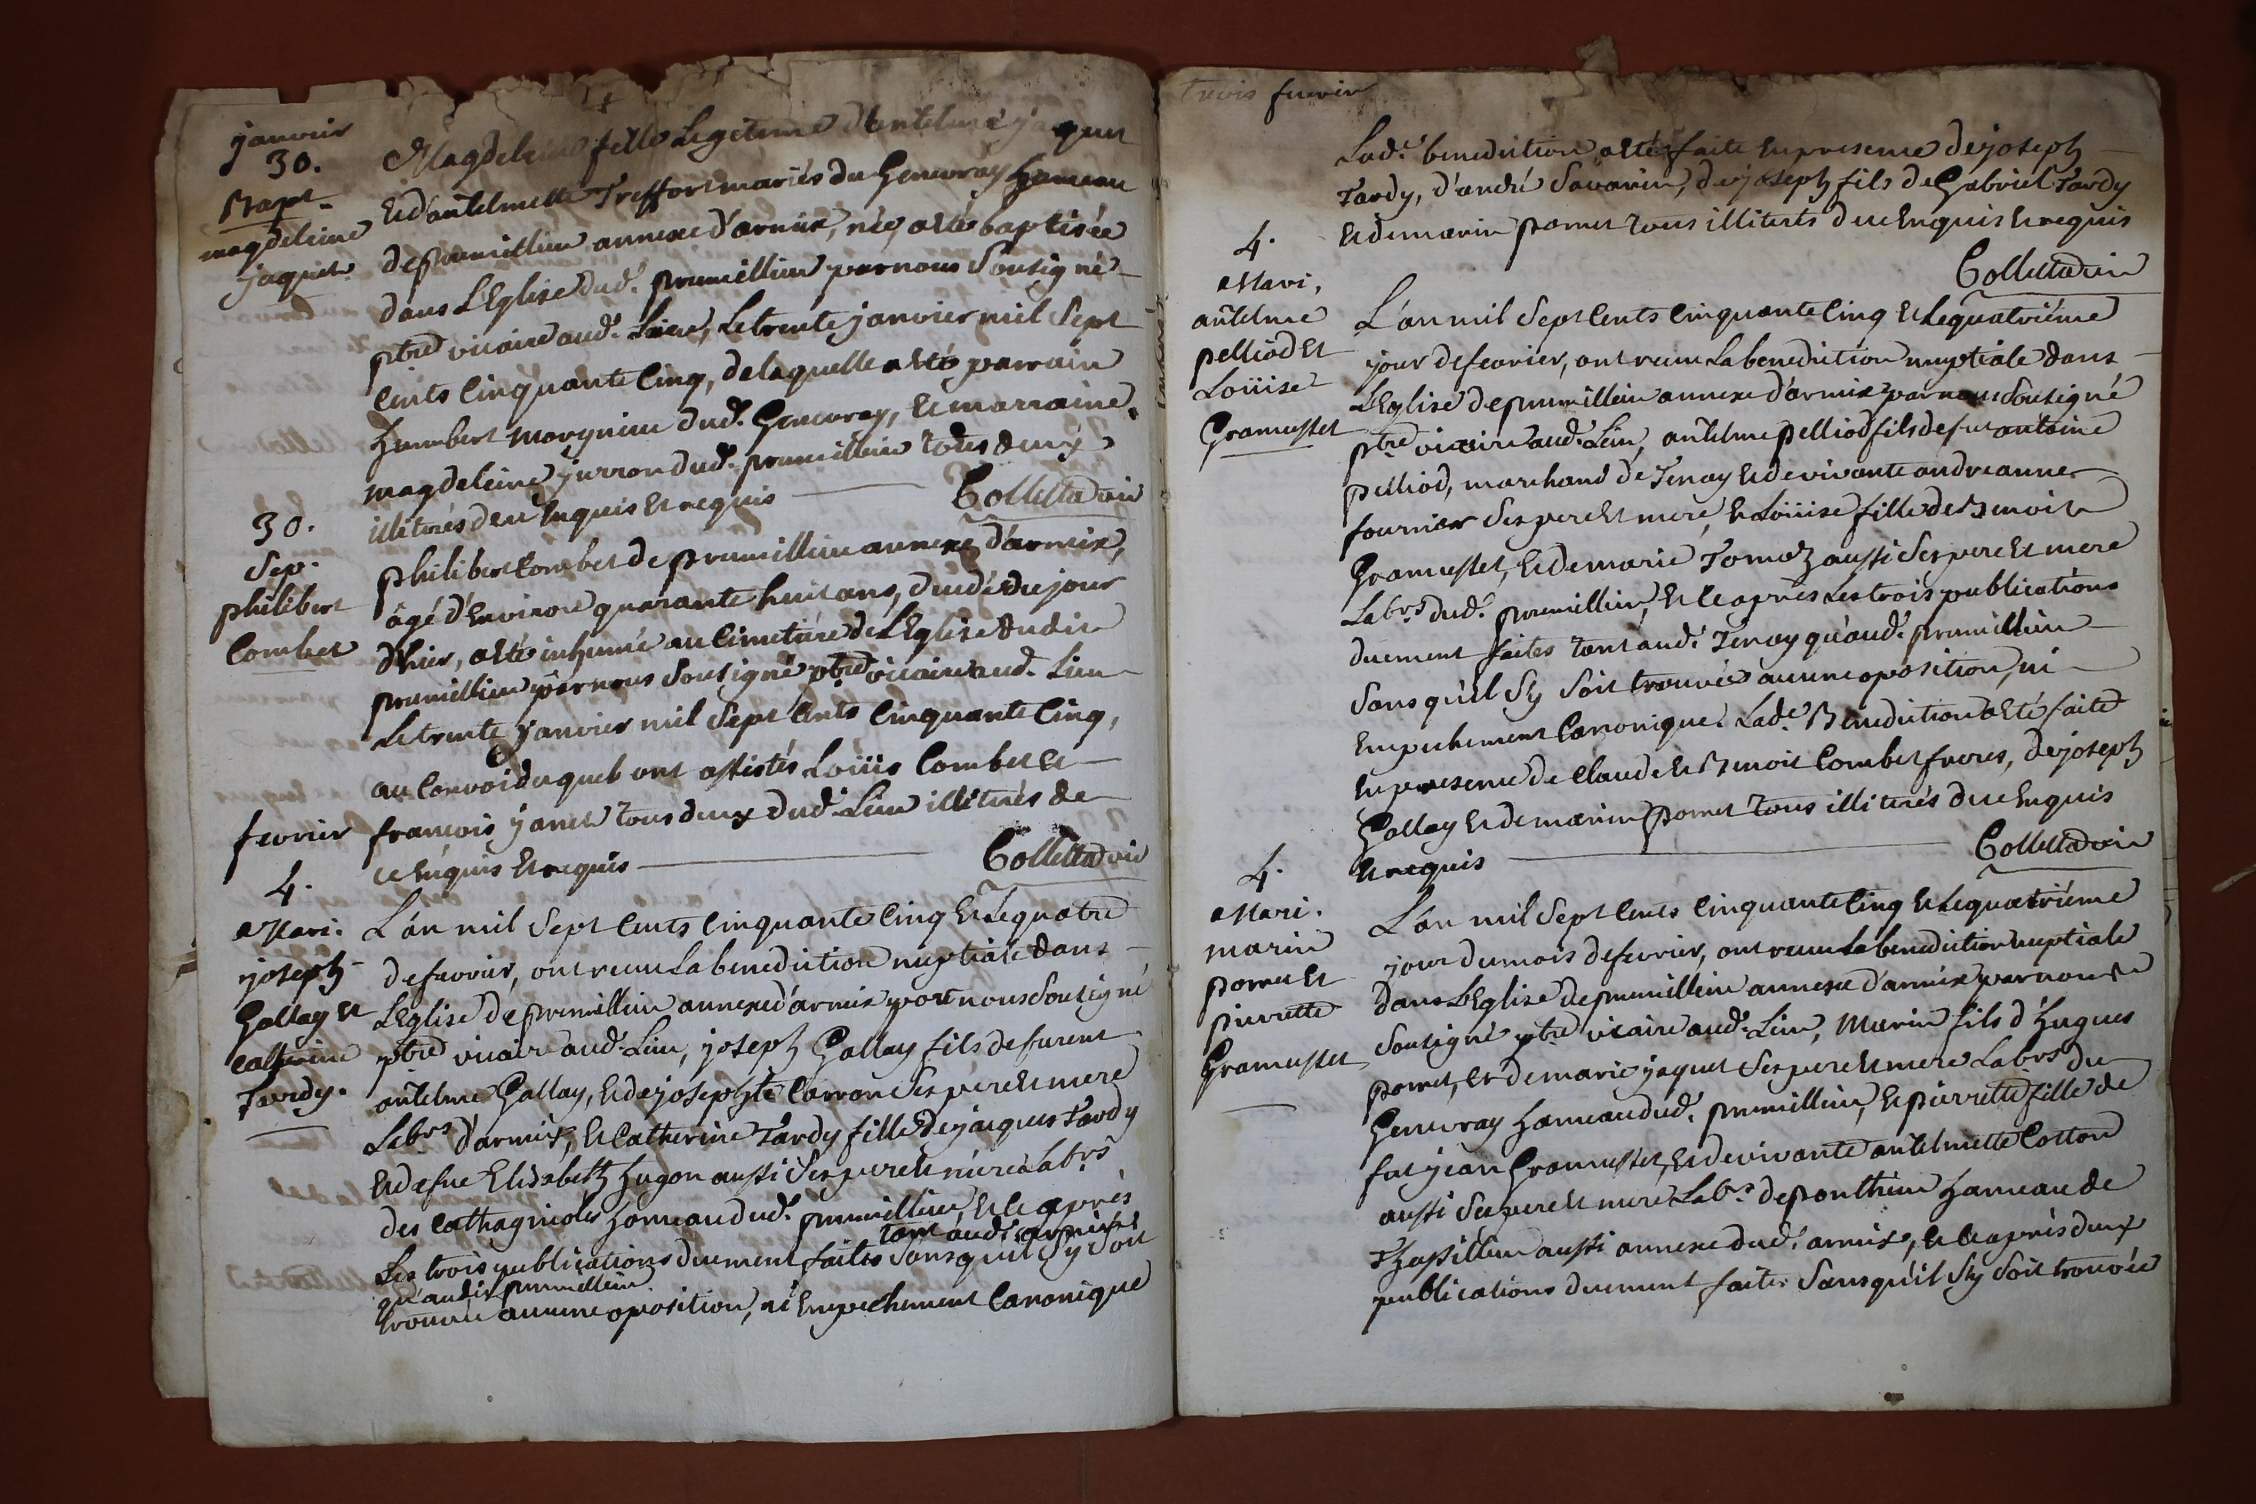 janvier
30.
Bapt.
magdeleine
jaquet
Magdeleine fille Legitime d'antelme jaquet
Et d'antelmette Treffort mariés du Genevray hameau
de prumillieu annexe d'armix, née, a été baptisée
dans L'Eglise dud. prumillieu par nous Soutigné
ptre vicaire aud. Lieu, Le trente janvier mil Sept
Cents Cinquante Cinq, de laquelle a été parrain
humbert morgnieu dud. Genevray, Et marraine
magdeleine jurron dud. prumillieu tous deux
illiterés de ce Enquis Et requis
Colletta vic
30.
Sep.
philibert
Combet
philibert Combet de prumillieu annexe d'armix,
âgé d'Environ quarante huit ans, decédé du jour
d'hier, a été inhumé au Cimetiére de L'Eglise dudit
prumillieu par nous Soutigné ptre vicaire aud. Lieu
Le trente janvier mil Sept Cents Cinquante Cinq,
au Convoi duquel ont assistés Loüis Combet Et
françois janet tous deux dud. Lieu illiterés de
ce Enquis Et requis
Colletta vic
fevrier
4.
Mari.
joseph
Gallay Et
Catherine
Tardy.
L'an mil Sept Cents Cinquante Cinq Et Le quatre
de fevrier, ont recu La benediction nuptiale dans
L'Eglise de prumillieu annexe d'armix par nous Soutigné
ptre vicaire aud. Lieu, joseph Gallay fils de furent
antelme Gallay, Et de josephte Carron Ses pere Et mere
Labrs d'armix, Et Catherine Tardy fille de jacques Tardy
Et de fue Elisabeth hugon aussi Ses pere Et mere Labrs
des Cathagnioles hameau dud. prumillieu, Et ce aprés
tant aud. armix
Les trois publications duement faites Sans qu'il S'y Soit
qu'audit prumillieu
trouvée aucune oposition, ni Empechement Canonique
trois fevrier
Lad. benediction a été faite En presence de joseph
Tardy, d'andré Savarin, de joseph fils de Gabriel Tardy
Et de marin pornet tous illiterés de ce Enquis Et requis
Colletta vic
4.
Mari,
antelme
pelliod Et
Loüise
Gramusset
L'an mil Sept Cents Cinquante Cinq Et Le quatriéme
jour de fevrier, ont recu La benediction nuptiale dans
L'Eglise de prumillieu annexe d'armix par nous Soutigné
ptre vicaire aud. Lieu, antelme pelliod fils de fut antoine
pelliod, marchand de Tenay Et de vivante andreanne
fournier Ses pere Et mere, Et Loüise fille de Benoit
Gramusset, Et de marie Tornoz aussi Ses pere Et mere
Labrs dud. prumillieu, Et ce aprés Les trois publications
duement faites tant aud. Tenay qu'aud. prumillieu
Sans qu'il S'y Soit trouvée aucune oposition, ni
Empechement Canonique. Lad. Benediction a été faite
En presence de Claude Et Benoit Combet freres, de joseph
Gallay Et de marin pornet tous illiterés de ce Enquis
Et requis
Colletta vic
4.
Mari.
marin
pornet Et
pierrette
Gramusset
L'an mil Sept Cents Cinquante Cinq Et Le quatriéme
jour du mois de fevrier, ont recu La benediction nuptiale
dans L'Eglise de prumillieu annexe d'armix par nous
Soutigné ptre vicaire aud. Lieu, Marin fils d'hugues
pornet, Et de marie jaquet Ses pere Et mere Labrs du
Genevray hameau dud. prumillieu, Et pierrette fille de
fut jean Gramusset, Et de vivante antelmette Cotton
aussi Ses pere Et mere Labrs de ponthieu hameau de
Thassillieu aussi annexe dud. armix, Et ce aprés deux
publications duement faites Sans qu'il S'y Soit trouvée